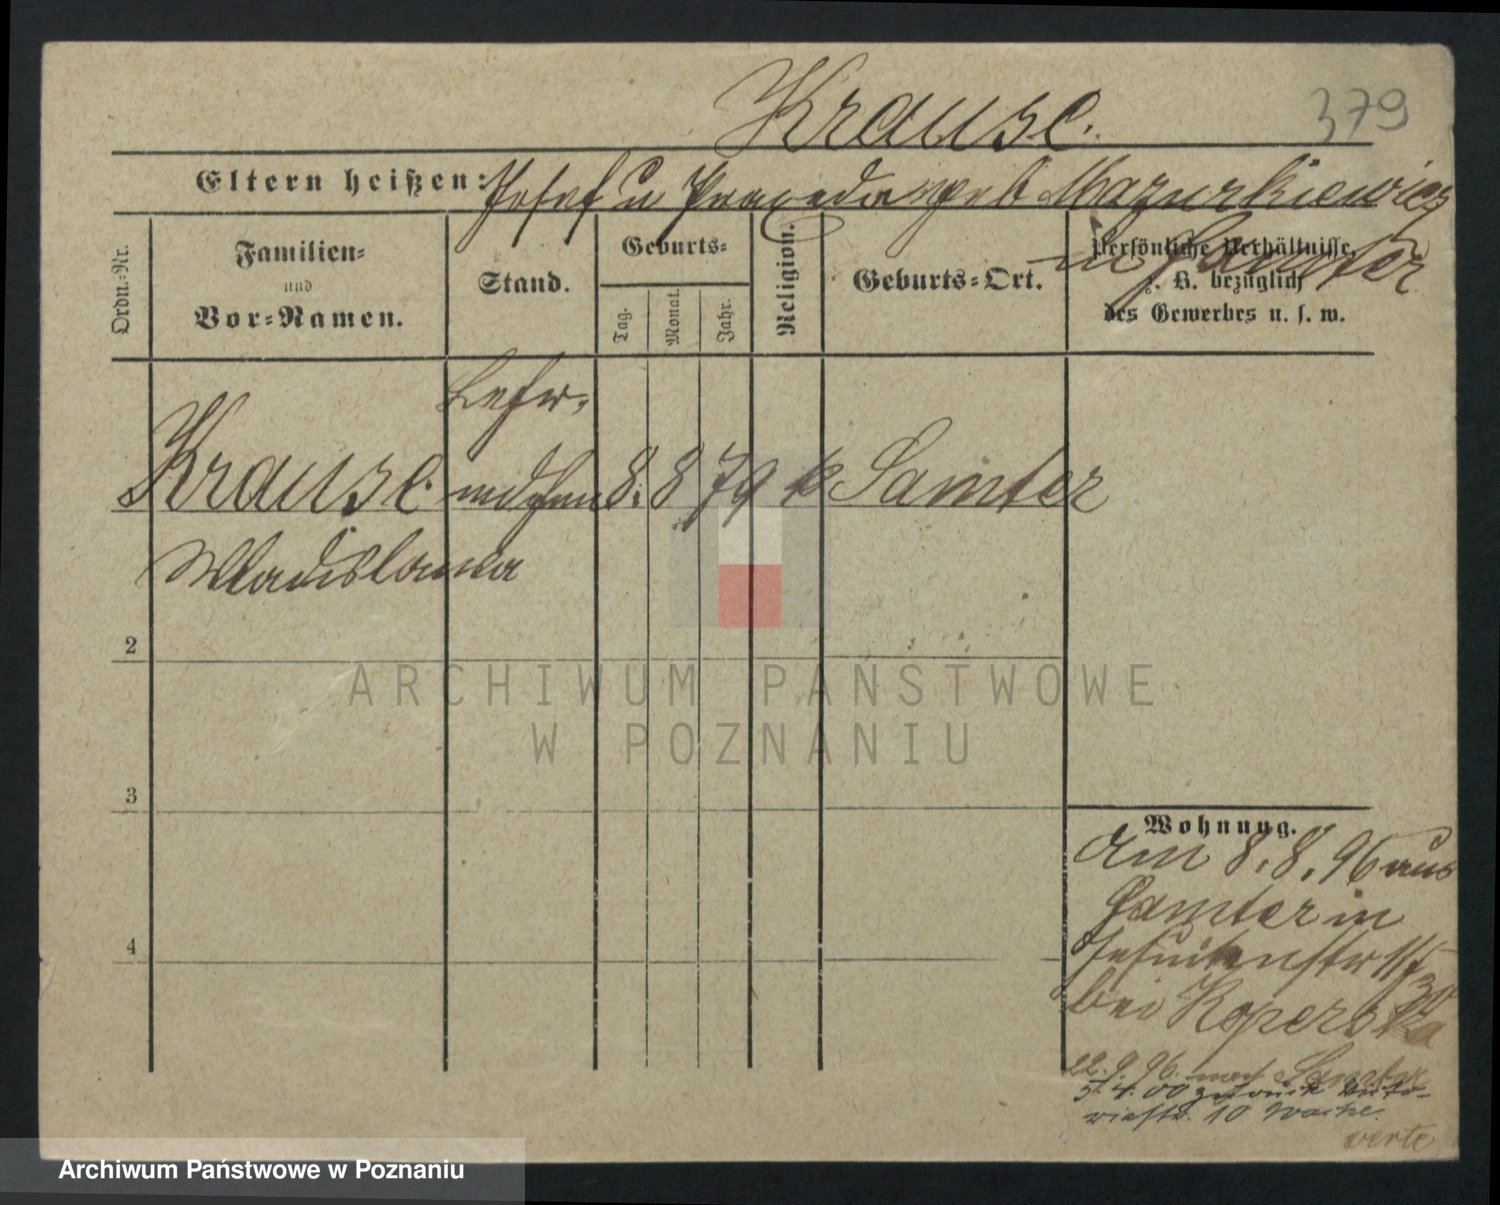 Krause.
379
Eltern heißen: Josef u Praxeda geb Mazurkiewicz
in Samter
Ordn.-Nr.
Familien-
und
Vor-Namen.
Stand.
Geburts-
Tag.
Monat.
Jahr.
Religion.
Geburts-Ort.
Persönliche Verhältnisse,
z. B. bezüglich
des Gewerbes u. s. w.
Lehr-
Krause mdchen 8. 8 79 k Samter
Wladislawa
2
3
4
Wohnung.
am 8.8.96 aus
Samter in
Jesuitenstr 11
bei Koperska
22.9.96. nach Samter
5.4.00 zurück Victo-
riastr. 10 Wache.
verte
ARCHIWUM PAŃSTWOWE
W POZNANIU
Archiwum Państwowe w Poznaniu